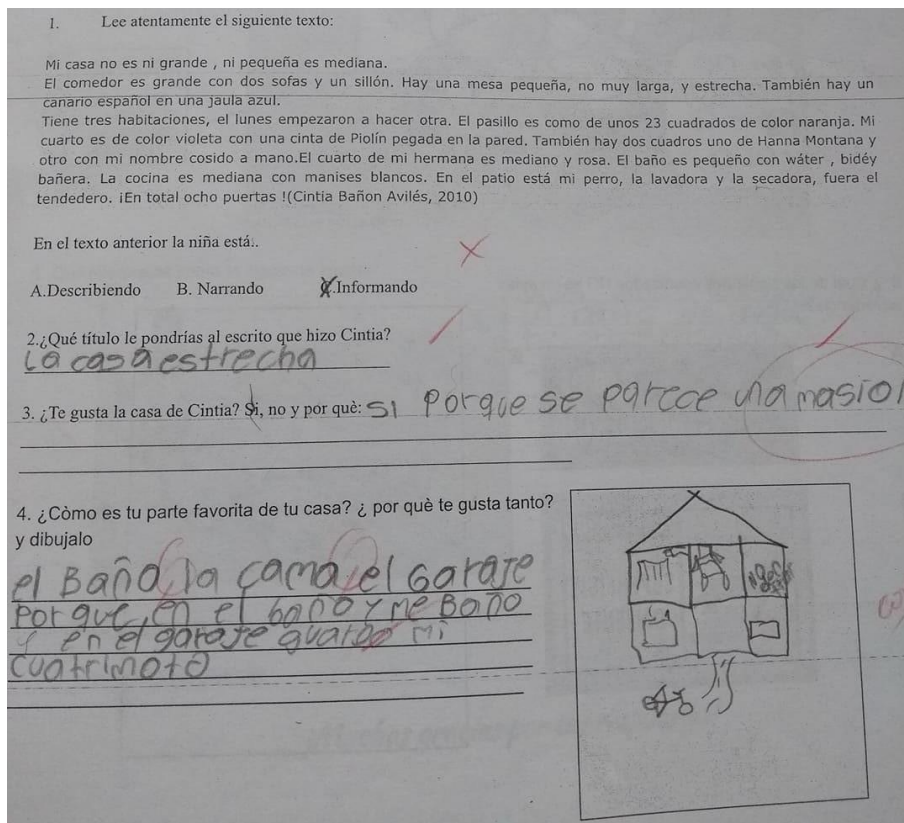 1. Lee atentamente el siguiente texto:
Mi casa no es ni grande , ni pequeña es mediana.
El comedor es grande con dos sofas y un sillón. Hay una mesa pequeña, no muy larga, y estrecha. También hay un
canario español en una jaula azul.
Tiene tres habitaciones, el lunes empezaron a hacer otra. El pasillo es como de unos 23 cuadrados de color naranja. Mi
cuarto es de color violeta con una cinta de Piolín pegada en la pared. También hay dos cuadros uno de Hanna Montana y
otro con mi nombre cosido a mano.El cuarto de mi hermana es mediano y rosa. El baño es pequeño con wáter , bidéy
bañera. La cocina es mediana con manises blancos. En el patio está mi perro, la lavadora y la secadora, fuera el
tendedero. ¡En total ocho puertas !(Cintia Bañon Avilés, 2010)
En el texto anterior la niña está..
A.Describiendo B. Narrando C.Informando
2.¿Qué título le pondrías al escrito que hizo Cintia?
La casa estrecha
3. ¿Te gusta la casa de Cintia? Si, no y por què: SI porque se parece una masion
4. ¿Còmo es tu parte favorita de tu casa? ¿ por què te gusta tanto?
y dibujalo
el Baño, la cama, el Garaje
Porque, en el baño y me Baño
y en el garaje guardo mi
cuatrimoto